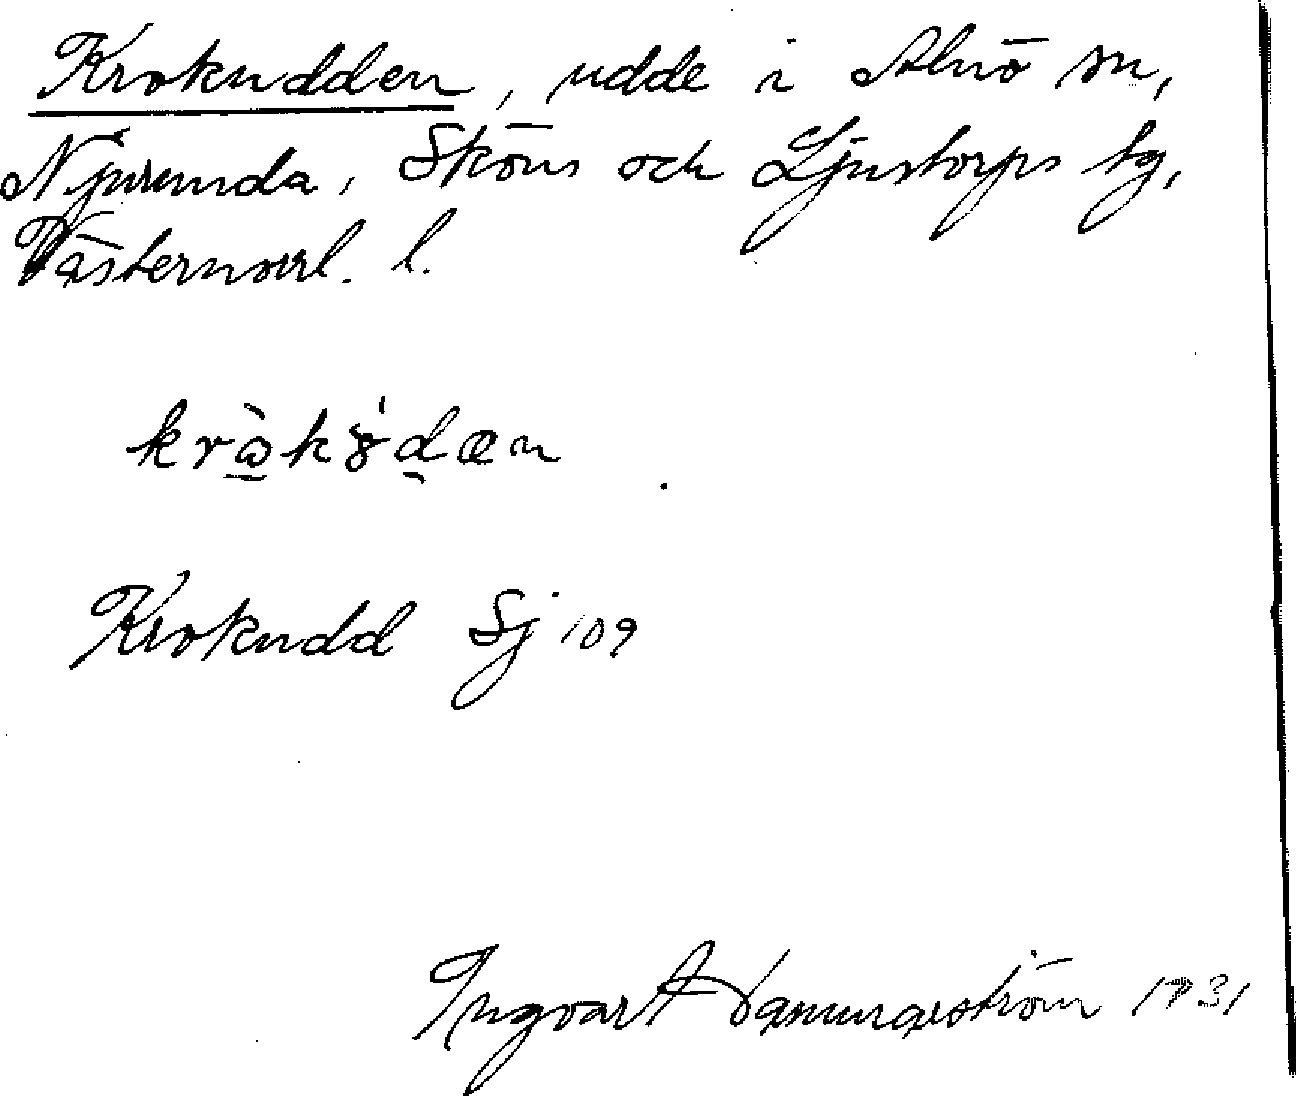 Krokudden, udde i Alnö sn,
Njurunda, Sköns och Ljustorps tg,
Västernorrl. l.
Krokudd Sj 109
Ingvar Hammarström 1931